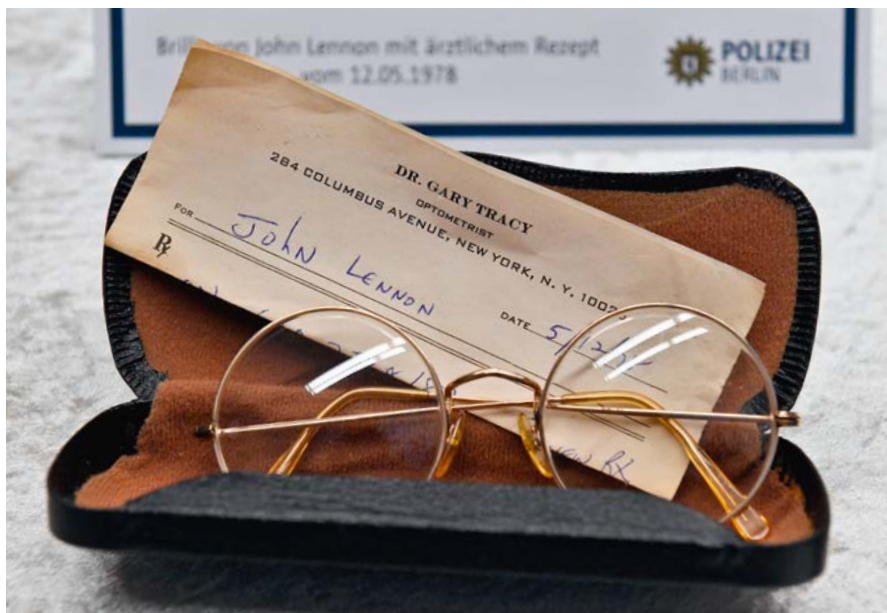 von John Lennon mit ärztlichem Rezept
vom 12.05.1978
POLIZEI
BERLIN
DR. GARY TRACY
OPTOMETRIST
284 COLUMBUS AVENUE, NEW YORK, N. Y.
FOR John LENNON
DATE
Rx
RX